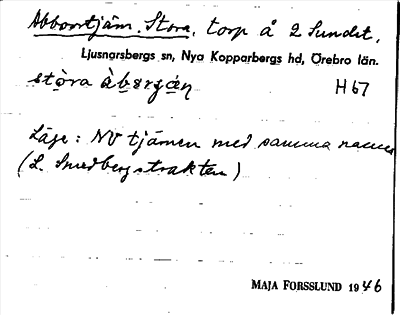 Abborrtjärn, Stora, torp å 2 Sundet,
Ljusnarsbergs sn, Nya Kopparbergs hd, Örebro län.
stòra àbərʒán H 67
Läge: NV tjärnen med samma namn
(L. Smedbergstrakten)
MAJA FORSSLUND 1946